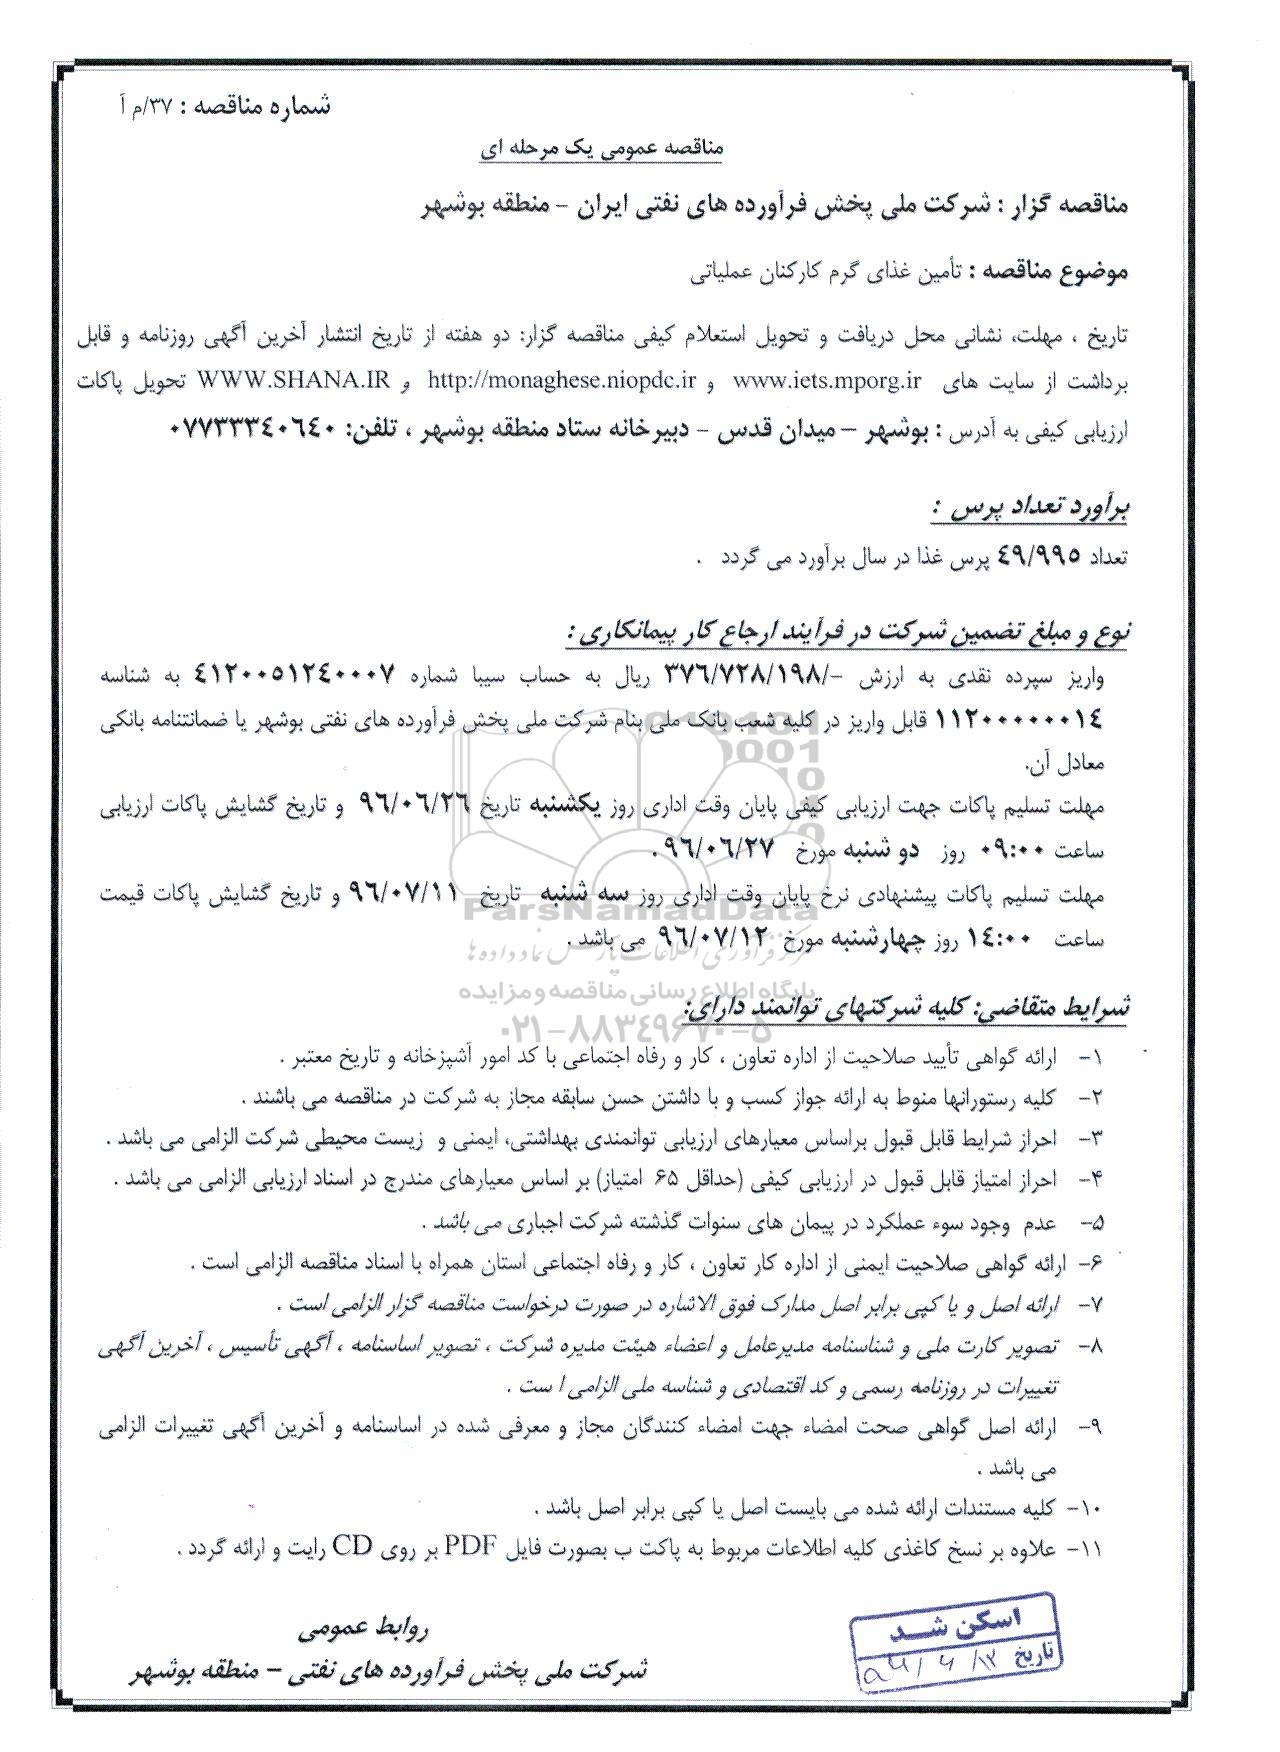 شماره مناقصه : ۳۷/م آ
مناقصه عمومی یک مرحله ای
مناقصه گزار : شرکت ملی پخش فرآورده های نفتی ایران – منطقه بوشهر
موضوع مناقصه : تأمین غذای گرم کارکنان عملیاتی
تاریخ ، مهلت، نشانی محل دریافت و تحویل استعلام کیفی مناقصه گزار: دو هفته از تاریخ انتشار آخرین آگهی روزنامه و قابل
برداشت از سایت های www.iets.mporg.ir و http://monaghese.niopdc.ir و WWW.SHANA.IR تحویل پاکات
ارزیابی کیفی به آدرس : بوشهر – میدان قدس – دبیرخانه ستاد منطقه بوشهر ، تلفن: ۰۷۷۳۳۳٤۰٦٤۰
برآورد تعداد پرس :
تعداد ٤۹/۹۹۵ پرس غذا در سال برآورد می گردد .
نوع و مبلغ تضمین شرکت در فرآیند ارجاع کار پیمانکاری :
واریز سپرده نقدی به ارزش -/۳۷٦/۷۲۸/۱۹۸ ریال به حساب سیبا شماره ٤۱۲۰۰۵۱۲٤۰۰۰۷ به شناسه
۱۱۲۰۰۰۰۰۰۰۱٤ قابل واریز در کلیه شعب بانک ملی بنام شرکت ملی پخش فرآورده های نفتی بوشهر یا ضمانتنامه بانکی
معادل آن.
مهلت تسلیم پاکات جهت ارزیابی کیفی پایان وقت اداری روز یکشنبه تاریخ ۹٦/۰٦/۲٦ و تاریخ گشایش پاکات ارزیابی
ساعت ۰۹:۰۰ روز دو شنبه مورخ ۹٦/۰٦/۲۷ .
مهلت تسلیم پاکات پیشنهادی نرخ پایان وقت اداری روز سه شنبه تاریخ ۹٦/۰۷/۱۱ و تاریخ گشایش پاکات قیمت
ساعت ۱٤:۰۰ روز چهارشنبه مورخ ۹٦/۰۷/۱۲ می باشد .
ParsNamadData
مرکز فرآوری اطلاعات پارس نماد داده ها
پایگاه اطلاع رسانی مناقصه و مزایده
۰۲۱-۸۸۳۴۹۶۷۰-۵
شرایط متقاضی: کلیه شرکتهای توانمند دارای:
۱- ارائه گواهی تأیید صلاحیت از اداره تعاون ، کار و رفاه اجتماعی با کد امور آشپزخانه و تاریخ معتبر .
۲- کلیه رستورانها منوط به ارائه جواز کسب و با داشتن حسن سابقه مجاز به شرکت در مناقصه می باشند .
۳- احراز شرایط قابل قبول براساس معیارهای ارزیابی توانمندی بهداشتی، ایمنی و زیست محیطی شرکت الزامی می باشد .
۴- احراز امتیاز قابل قبول در ارزیابی کیفی (حداقل ۶۵ امتیاز) بر اساس معیارهای مندرج در اسناد ارزیابی الزامی می باشد .
۵- عدم وجود سوء عملکرد در پیمان های سنوات گذشته شرکت اجباری می باشد .
۶- ارائه گواهی صلاحیت ایمنی از اداره کار تعاون ، کار و رفاه اجتماعی استان همراه با اسناد مناقصه الزامی است .
۷- ارائه اصل و یا کپی برابر اصل مدارک فوق الاشاره در صورت درخواست مناقصه گزار الزامی است .
۸- تصویر کارت ملی و شناسنامه مدیرعامل و اعضاء هیئت مدیره شرکت ، تصویر اساسنامه ، آگهی تأسیس ، آخرین آگهی
تغییرات در روزنامه رسمی و کد اقتصادی و شناسه ملی الزامی ا ست .
۹- ارائه اصل گواهی صحت امضاء جهت امضاء کنندگان مجاز و معرفی شده در اساسنامه و آخرین آگهی تغییرات الزامی
می باشد .
۱۰- کلیه مستندات ارائه شده می بایست اصل یا کپی برابر اصل باشد .
۱۱- علاوه بر نسخ کاغذی کلیه اطلاعات مربوط به پاکت ب بصورت فایل PDF بر روی CD رایت و ارائه گردد .
روابط عمومی
شرکت ملی پخش فرآورده های نفتی – منطقه بوشهر
اسکن شد
تاریخ